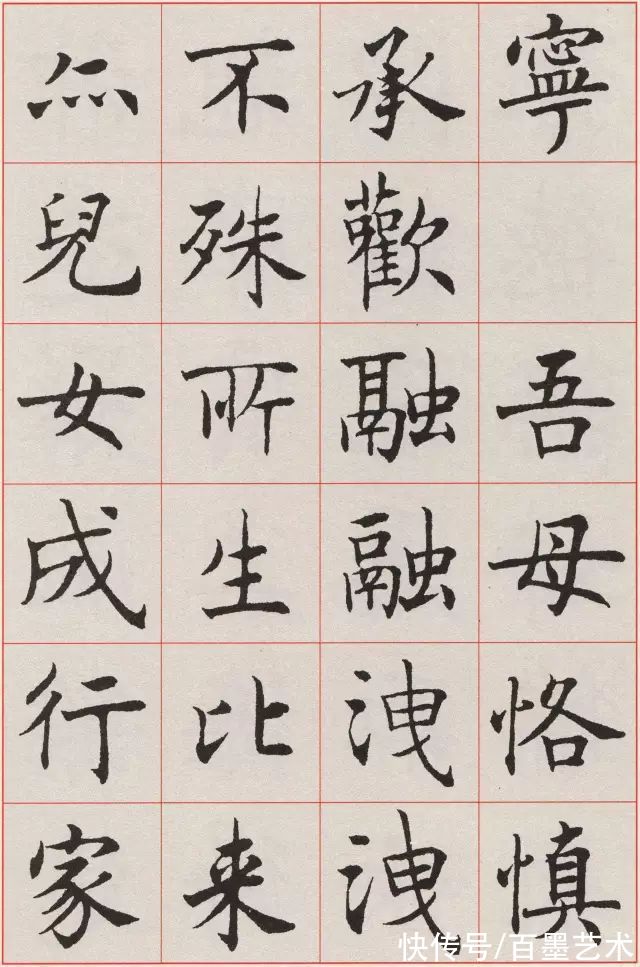 寧 吾母恪慎
承歡融融洩洩
不殊所生比来
兒女成行家
快传号/百墨艺术